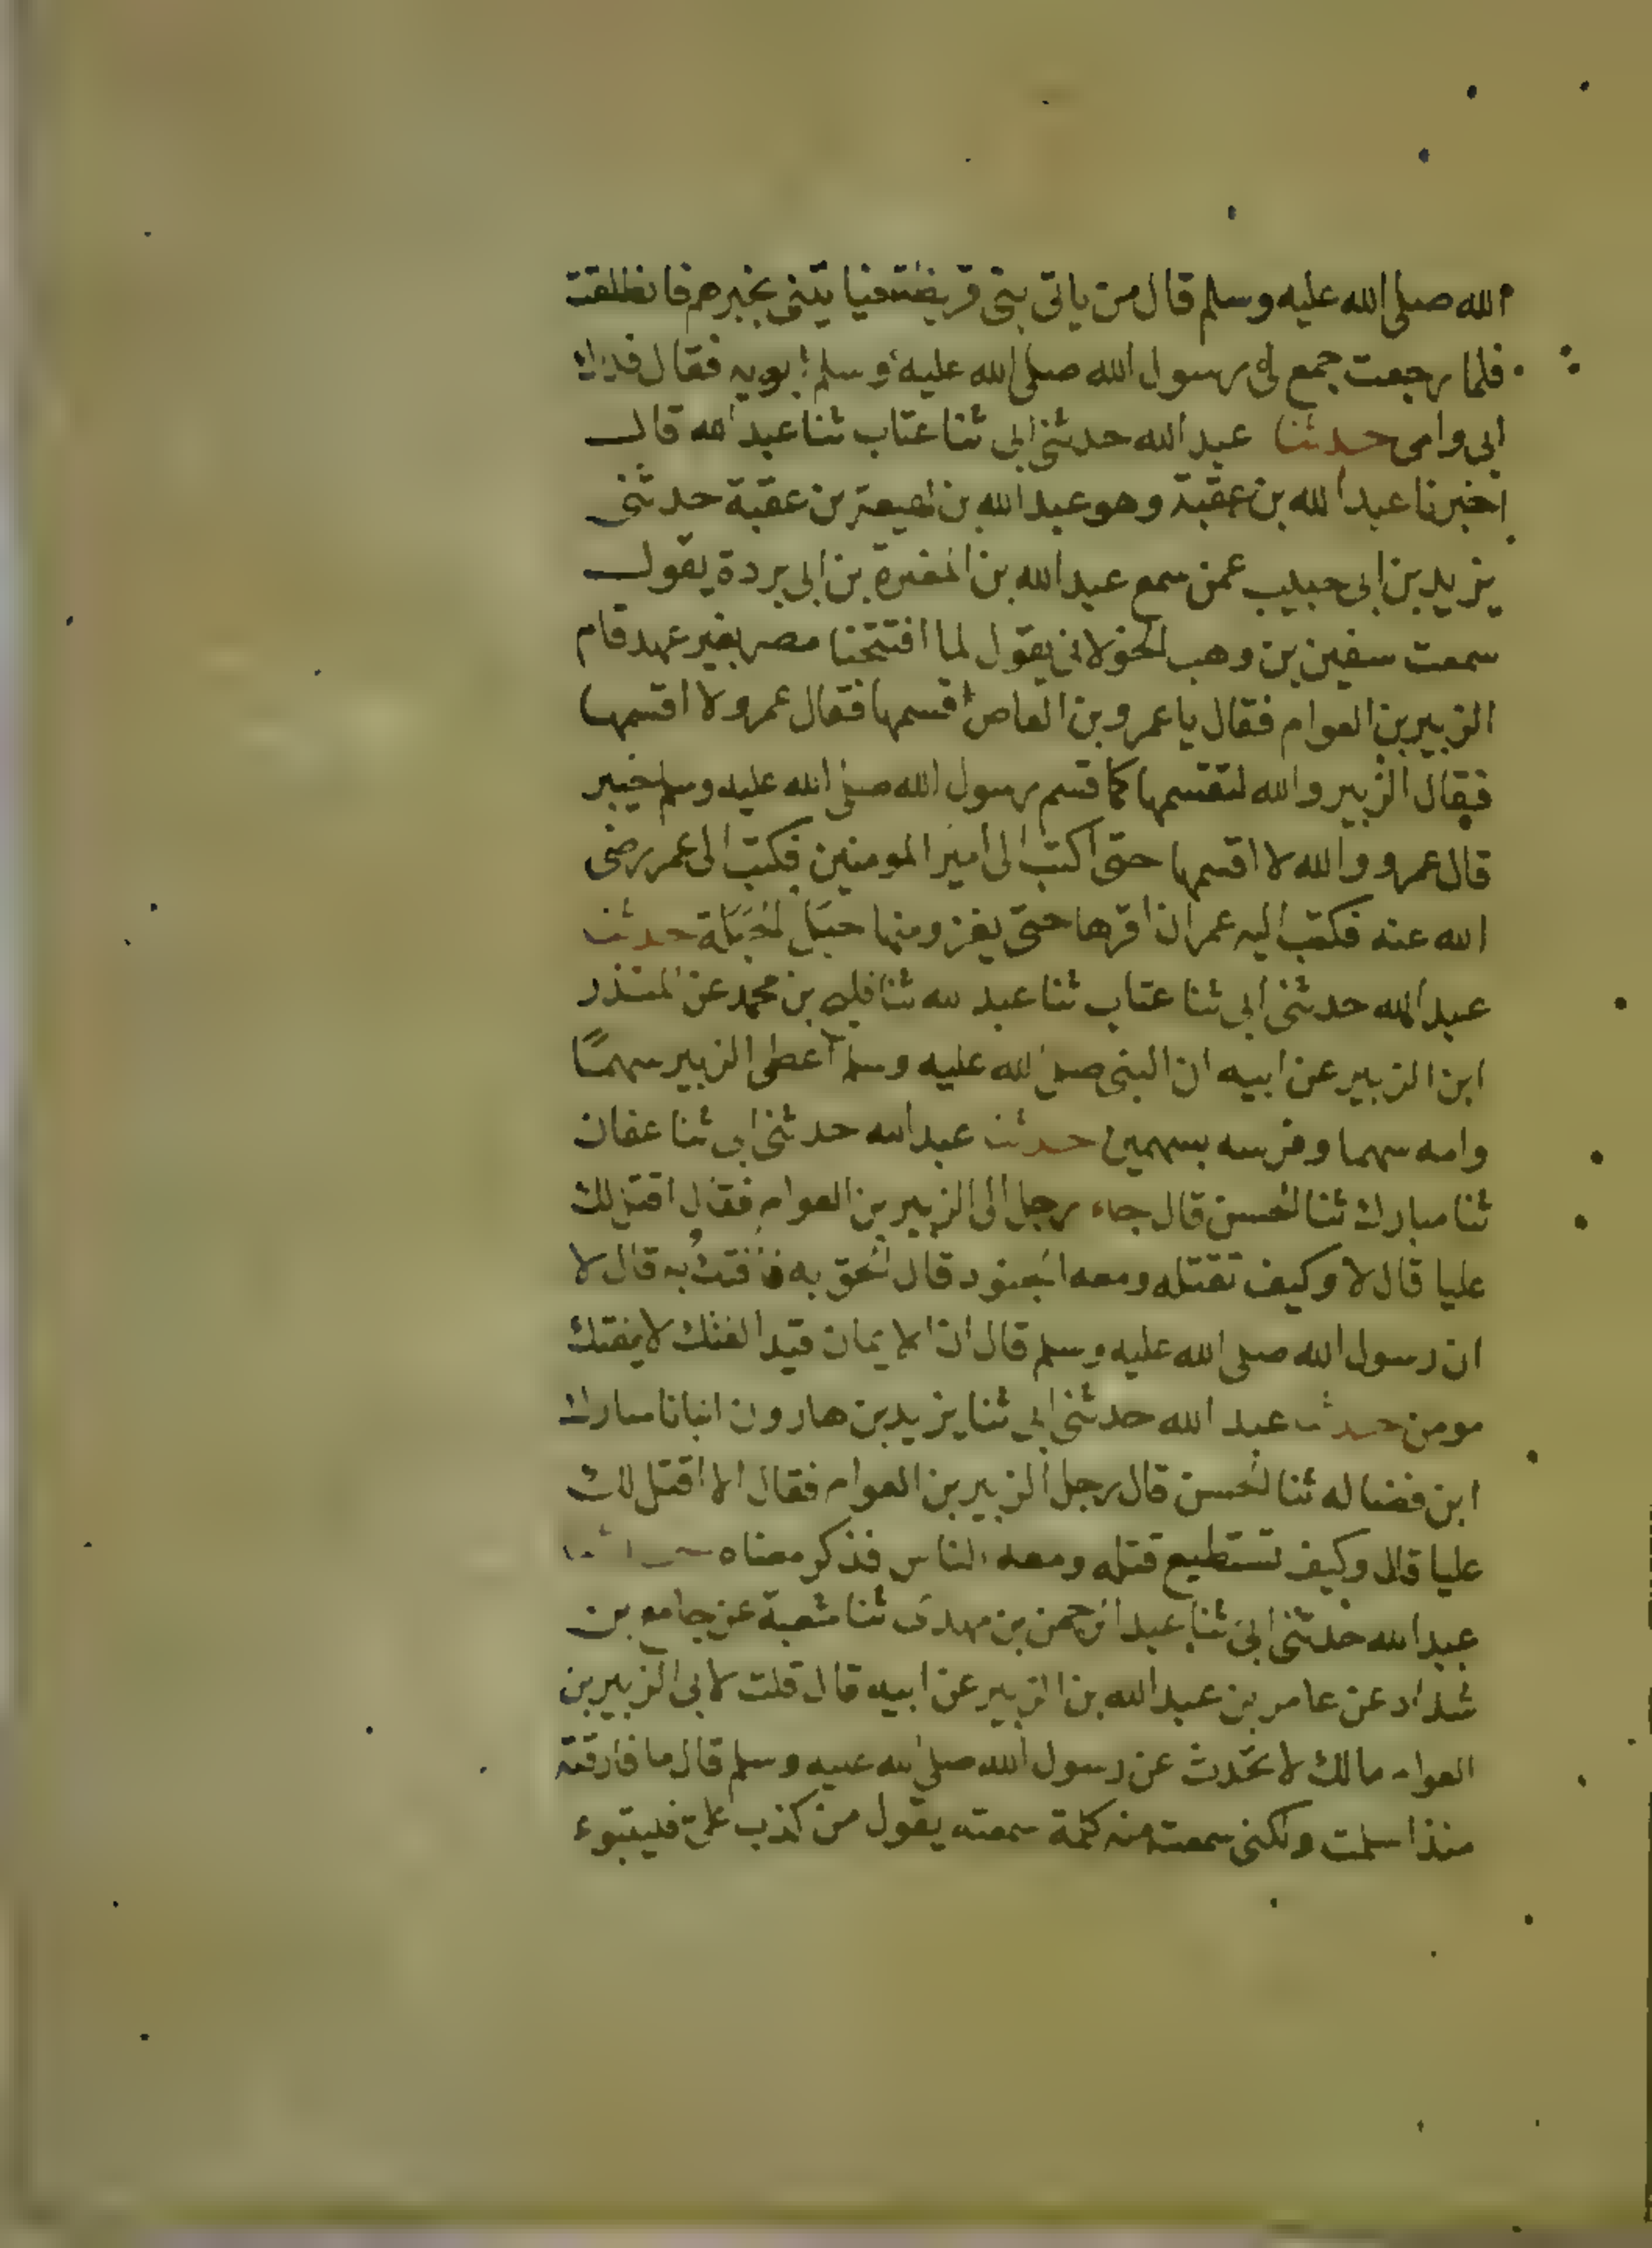 الله صلى الله عليه وسلم قال من ياتى بنى قريظة فياتينى بخبرهم فانطلقت
فلما رجعت جمع لى رسول الله صلى الله عليه وسلم ابويه فقال فداك
ابى وامى حدثنا عبد الله حدثنى ابى ثنا عتاب ثنا عبد الله قال
اخبرنا عبد الله بن عقبة وهو عبد الله بن لهيعة بن عقبة حدثنى
يزيد بن ابى حبيب عمن سمع عبد الله بن المغيرة بن ابى بردة يقول
سمعت سفين بن وهب الخولانى يقول لما افتتحنا مصر بغير عهد قام
الزبير بن العوام فقال يا عمرو بن العاص اقسمها فقال عمرو لا اقسمها
فقال الزبير والله لتقسمها كما قسم رسول الله صلى الله عليه وسلم خيبر
قال عمرو والله لا اقسمها حتى اكتب الى امير المومنين فكتب الى عمر رضى
الله عنه فكتب اليه عمر ان اقرها حتى يغزو منها حبل الحبلة حدثنا
عبد الله حدثنى ابى ثنا عتاب ثنا عبد الله ثنا فليح بن محمد عن المنذر
ابن الزبير عن ابيه ان النبى صلى الله عليه وسلم اعطى الزبير سهمًا
وامه سهما وفرسه بسهمين حدثنا عبد الله حدثنى ابى ثنا عفان
ثنا مبارك ثنا الحسن قال جاء رجل الى الزبير بن العوام فقال اقتل لك
عليا قال لا وكيف تقتله ومعه الجنود قال الحق به فافتك به قال لا
ان رسول الله صلى الله عليه وسلم قال ان الايمان قيد الفتك لا يفتك
مومن حدثنا عبد الله حدثنى ابى ثنا يزيد بن هارون انبانا مبارك
ابن فضاله ثنا الحسن قال رجل الزبير بن العوام فقال الا اقتل لك
عليا قال وكيف تستطيع قتله ومعه الناس فذكر معناه حدثنا
عبد الله حدثنى ابى ثنا عبد الرحمن بن مهدى ثنا شعبة عن جامع بن
شداد عن عامر بن عبد الله بن الزبير عن ابيه قال قلت لابى الزبير بن
العوام مالك لا تحدث عن رسول الله صلى الله عليه وسلم قال ما فارقته
منذ اسلمت ولكنى سمعت منه كلمة سمعته يقول من كذب علىّ فليتبوء